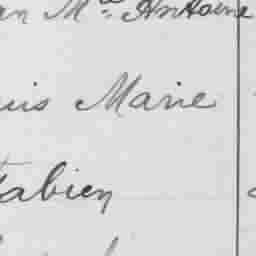 an Mce Antoine
uis Marie
Fabien